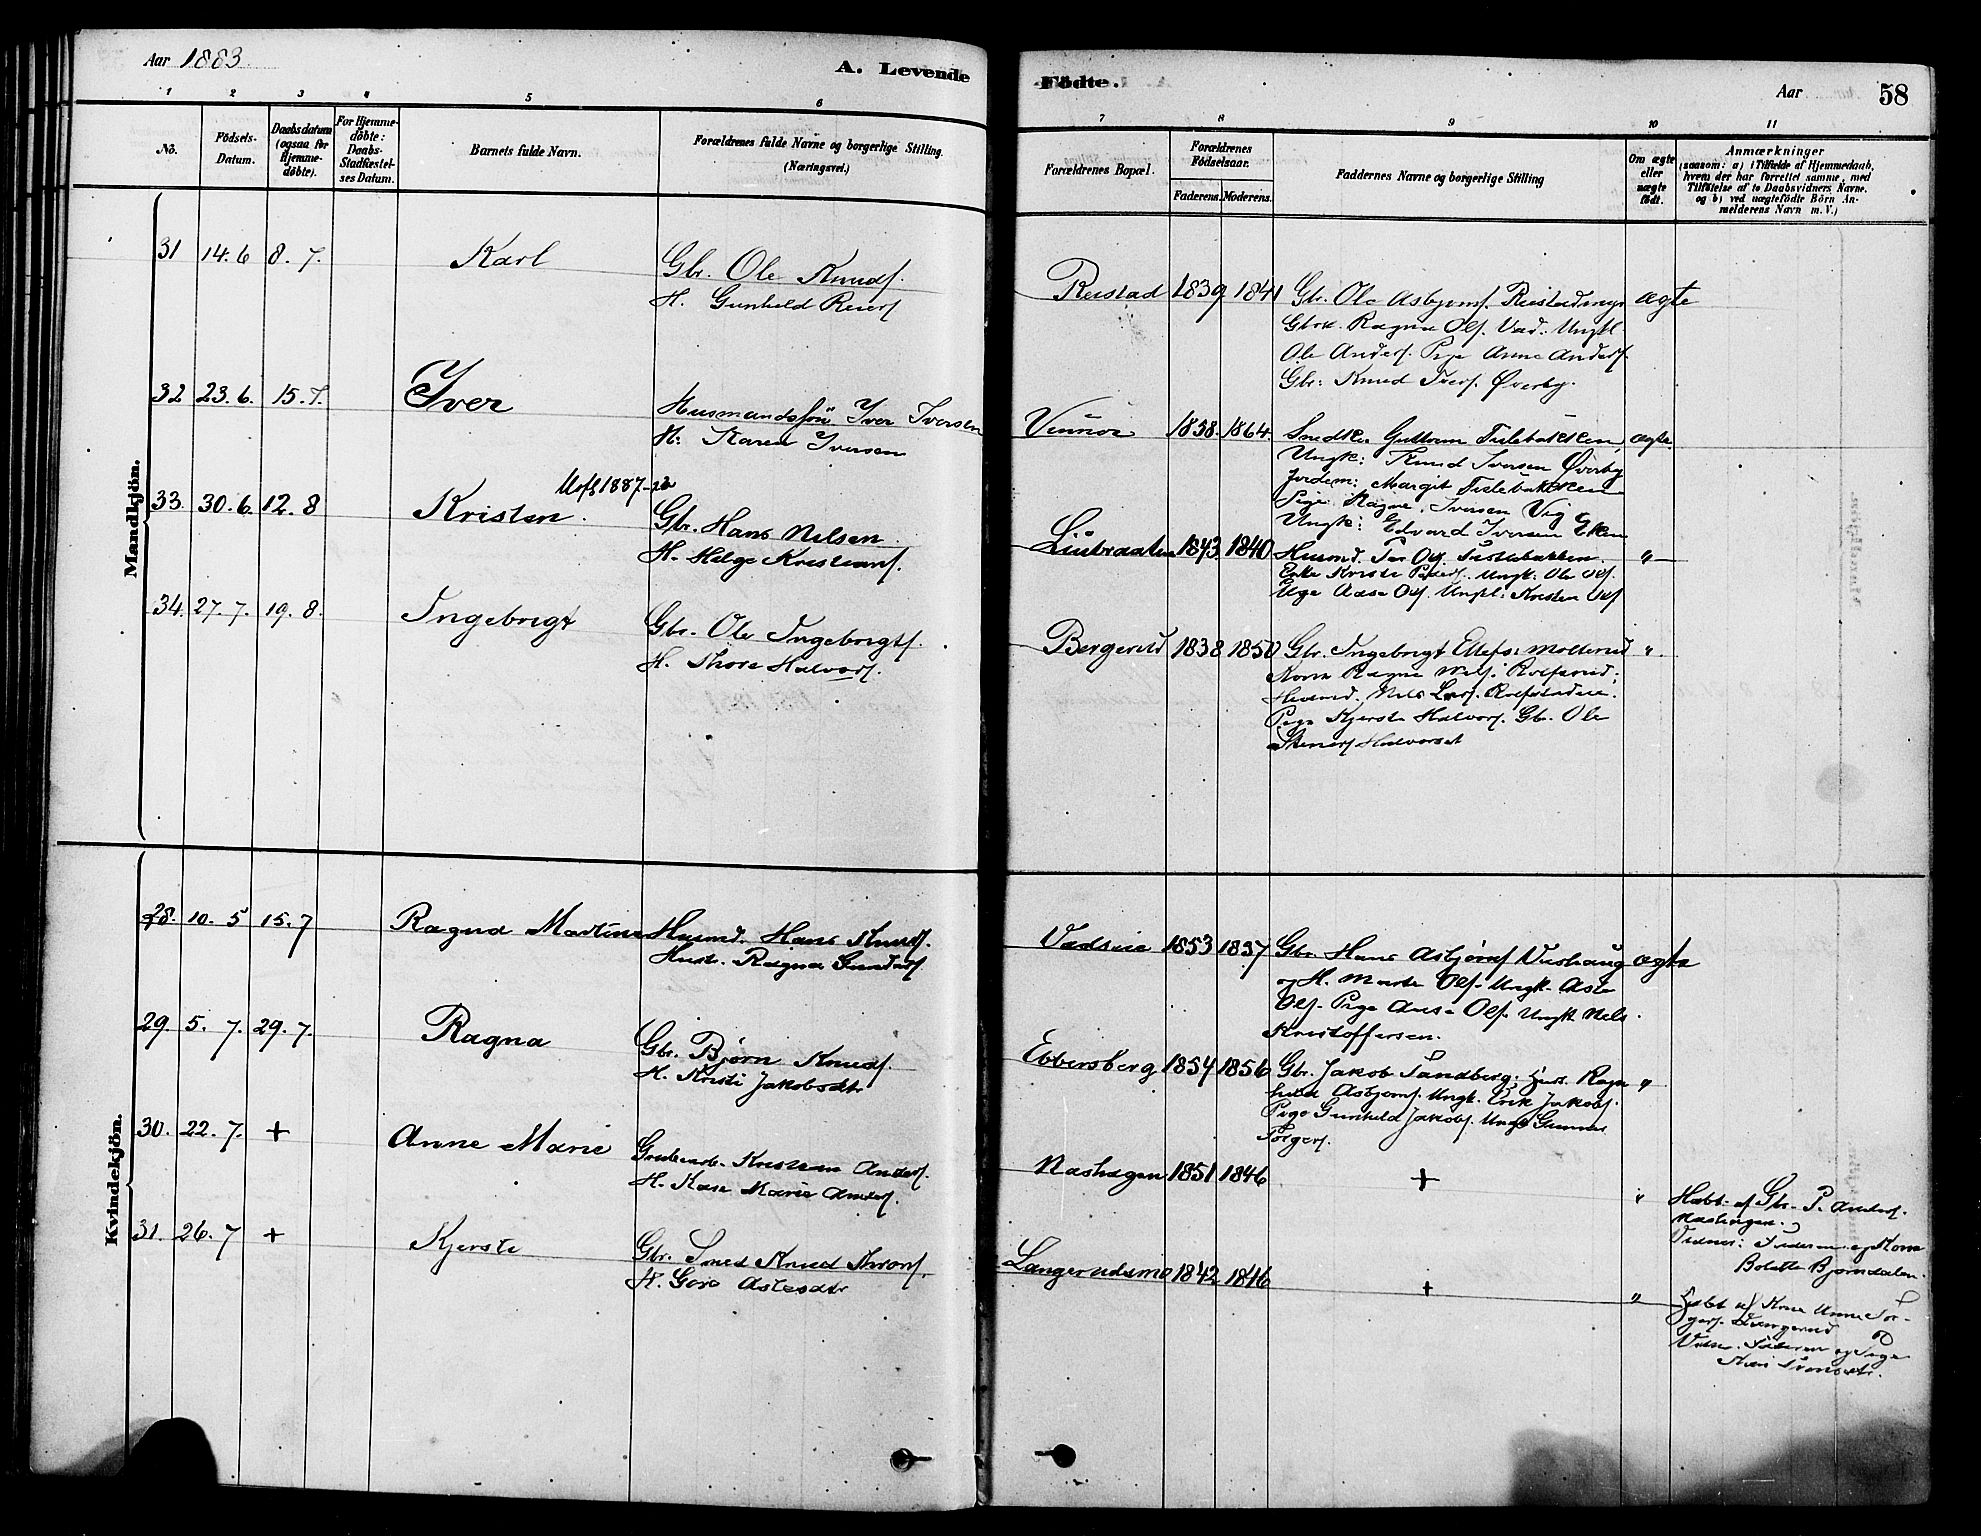 Aar 1883.
A. Levende
Födte.
Aar
58
1 2 3 4 5 6
7 8 9 10 11
No.
Födsels-
Datum.
Daabsdatum
(ogsaa for
Hjemme-
døbte).
For Hjemme-
døbte:
Daabs-
Stadfæstel-
ses Datum.
Barnets fulde Navn.
Forældrenes fulde Navne og borgerlige Stilling.
(Næringsvei.)
Forældrenes Bopæl.
Forældrenes
Födselsaar.
Faderens. Moderens.
Faddernes Navne og borgerlige Stilling
Om ægte
eller
uægte
födt.
Anmærkninger
(saasom: a) i Tilfælde af Hjemmedaab,
hvem der har forrettet samme, med
Tilföielse af to Daabsvidners Navne.
og b) ved uægtefödte Börn An-
melderens Navn m. V.)
Mandkjön.
31 14.6 8.7. Karl
Gbr. Ole Knuds.
H. Gunhild Reiers
Reistad 1839 1841
Gbr. Ole Asbjørns.
Gbrk. Ragne Ols. Vad. Ungk.
Ole Anders. Pige Anne Anders.
Gbr: Knud Ivers. Øverby.
ægte
32 23.6. 15.7. Iver
Iver Iversen
H: Karen Iversen
1838. 1864.
Snedker Guttorm
Ungk: Knud Iversen Øverby
Margit
Pige Ragne Iversen Vig
Ungk: Edvard Iversen Eken
ægte
33. 30.6. 12.8 Kristen.
1887
Gbr. Hans Nilsen.
H. Helge Kristians.
1843 1840
Husmd. Per Ols.
Enke Kristi Peders. Ungk: Ole Ols.
Pige Aase Ols. Ungk: Kristen Ols
"
34. 27.7. 19.8. Ingebrigt
Gbr. Ole Ingebrigts.
H. Thore Halvors.
Bergerud 1838 1850
Gbr. Ingebrigt Ellefs: Molterud
Kone Ragne Nils. Rolfsrud;
Husmd. Nils Lars.
Pige Kjersti Halvors. Gbr. Ole
Steners Halvorset
"
Kvindekjön.
28. 10.5 15.7 Ragna Martine
Husmd. Hans Knuds.
Hustr. Ragna Gunders
1853 1857
Gbr. Hans Asbjørns Vishaug
og H. Marte Ols. Ungk. Aste
Ols. Pige Anne Ols. Ungk Nils
Kristoffersen.
ægte
29. 5.7. 29.7. Ragna
Gbr. Bjørn Knuds.
H. Kristi Jakobsdtr
Ebbersberg 1854 1856
Gbr. Jakob Sandberg; Hust. Ragn
hild Asbjørns. Ungk. Erik Jakobs.
Pige Gunhild Jakobs. Ungk Gunnar
Torgers.
"
30. 22.7. + Anne Marie
Grubearb. Kristian Anders.
H. Karen Marie Anders.
Nashagen 1851 1846
+
"
af Gbr. P. Anders.
Nashagen.
Vidner: Faderen og Kone
Bolette Bjørndalen.
31. 26.7 + Kjersti
Gbr. Smed Knud
H. Goro Astesdtr
Langerudsmo 1842 1846
+
"
af Kone Anne Tor-
gers.
Vidn. Faderen og Pige
Kari